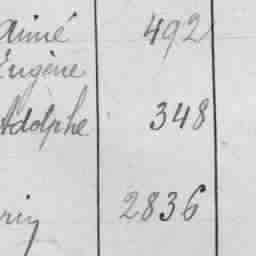 Aimé 492
Eugène
Adolphe 348
2836